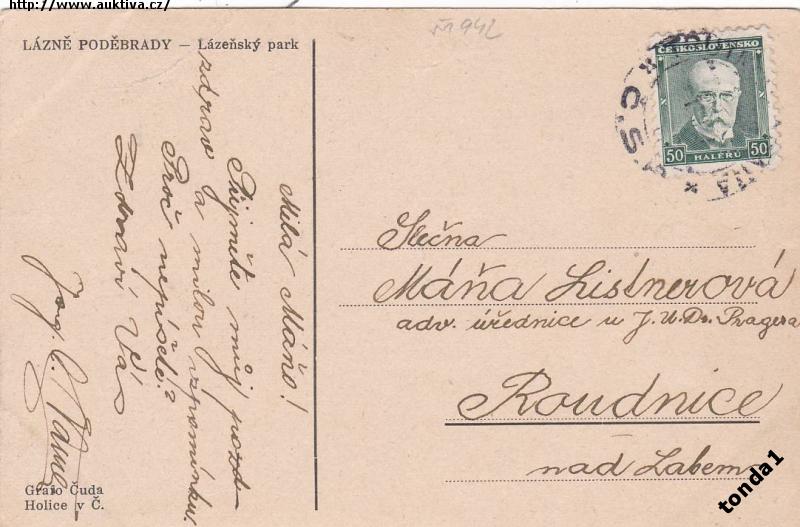 http://www.auktiva.cz/
M942
LÁZNĚ PODĚBRADY – Lázeňský park
ČESKOSLOVENSKO
50 HALÉŘŮ 50
Milá Máňo!
Přijměte můj pozd-
zdrav a milou vzpomínku.
Proč nepíšete?
Zdraví Vás
Slečna
Máňa Listnerová
adv. úřednice u J.U.Dr. Pragera
Roudnice
nad Labem
Grafo Čuda
Holice v Č.
tonda1